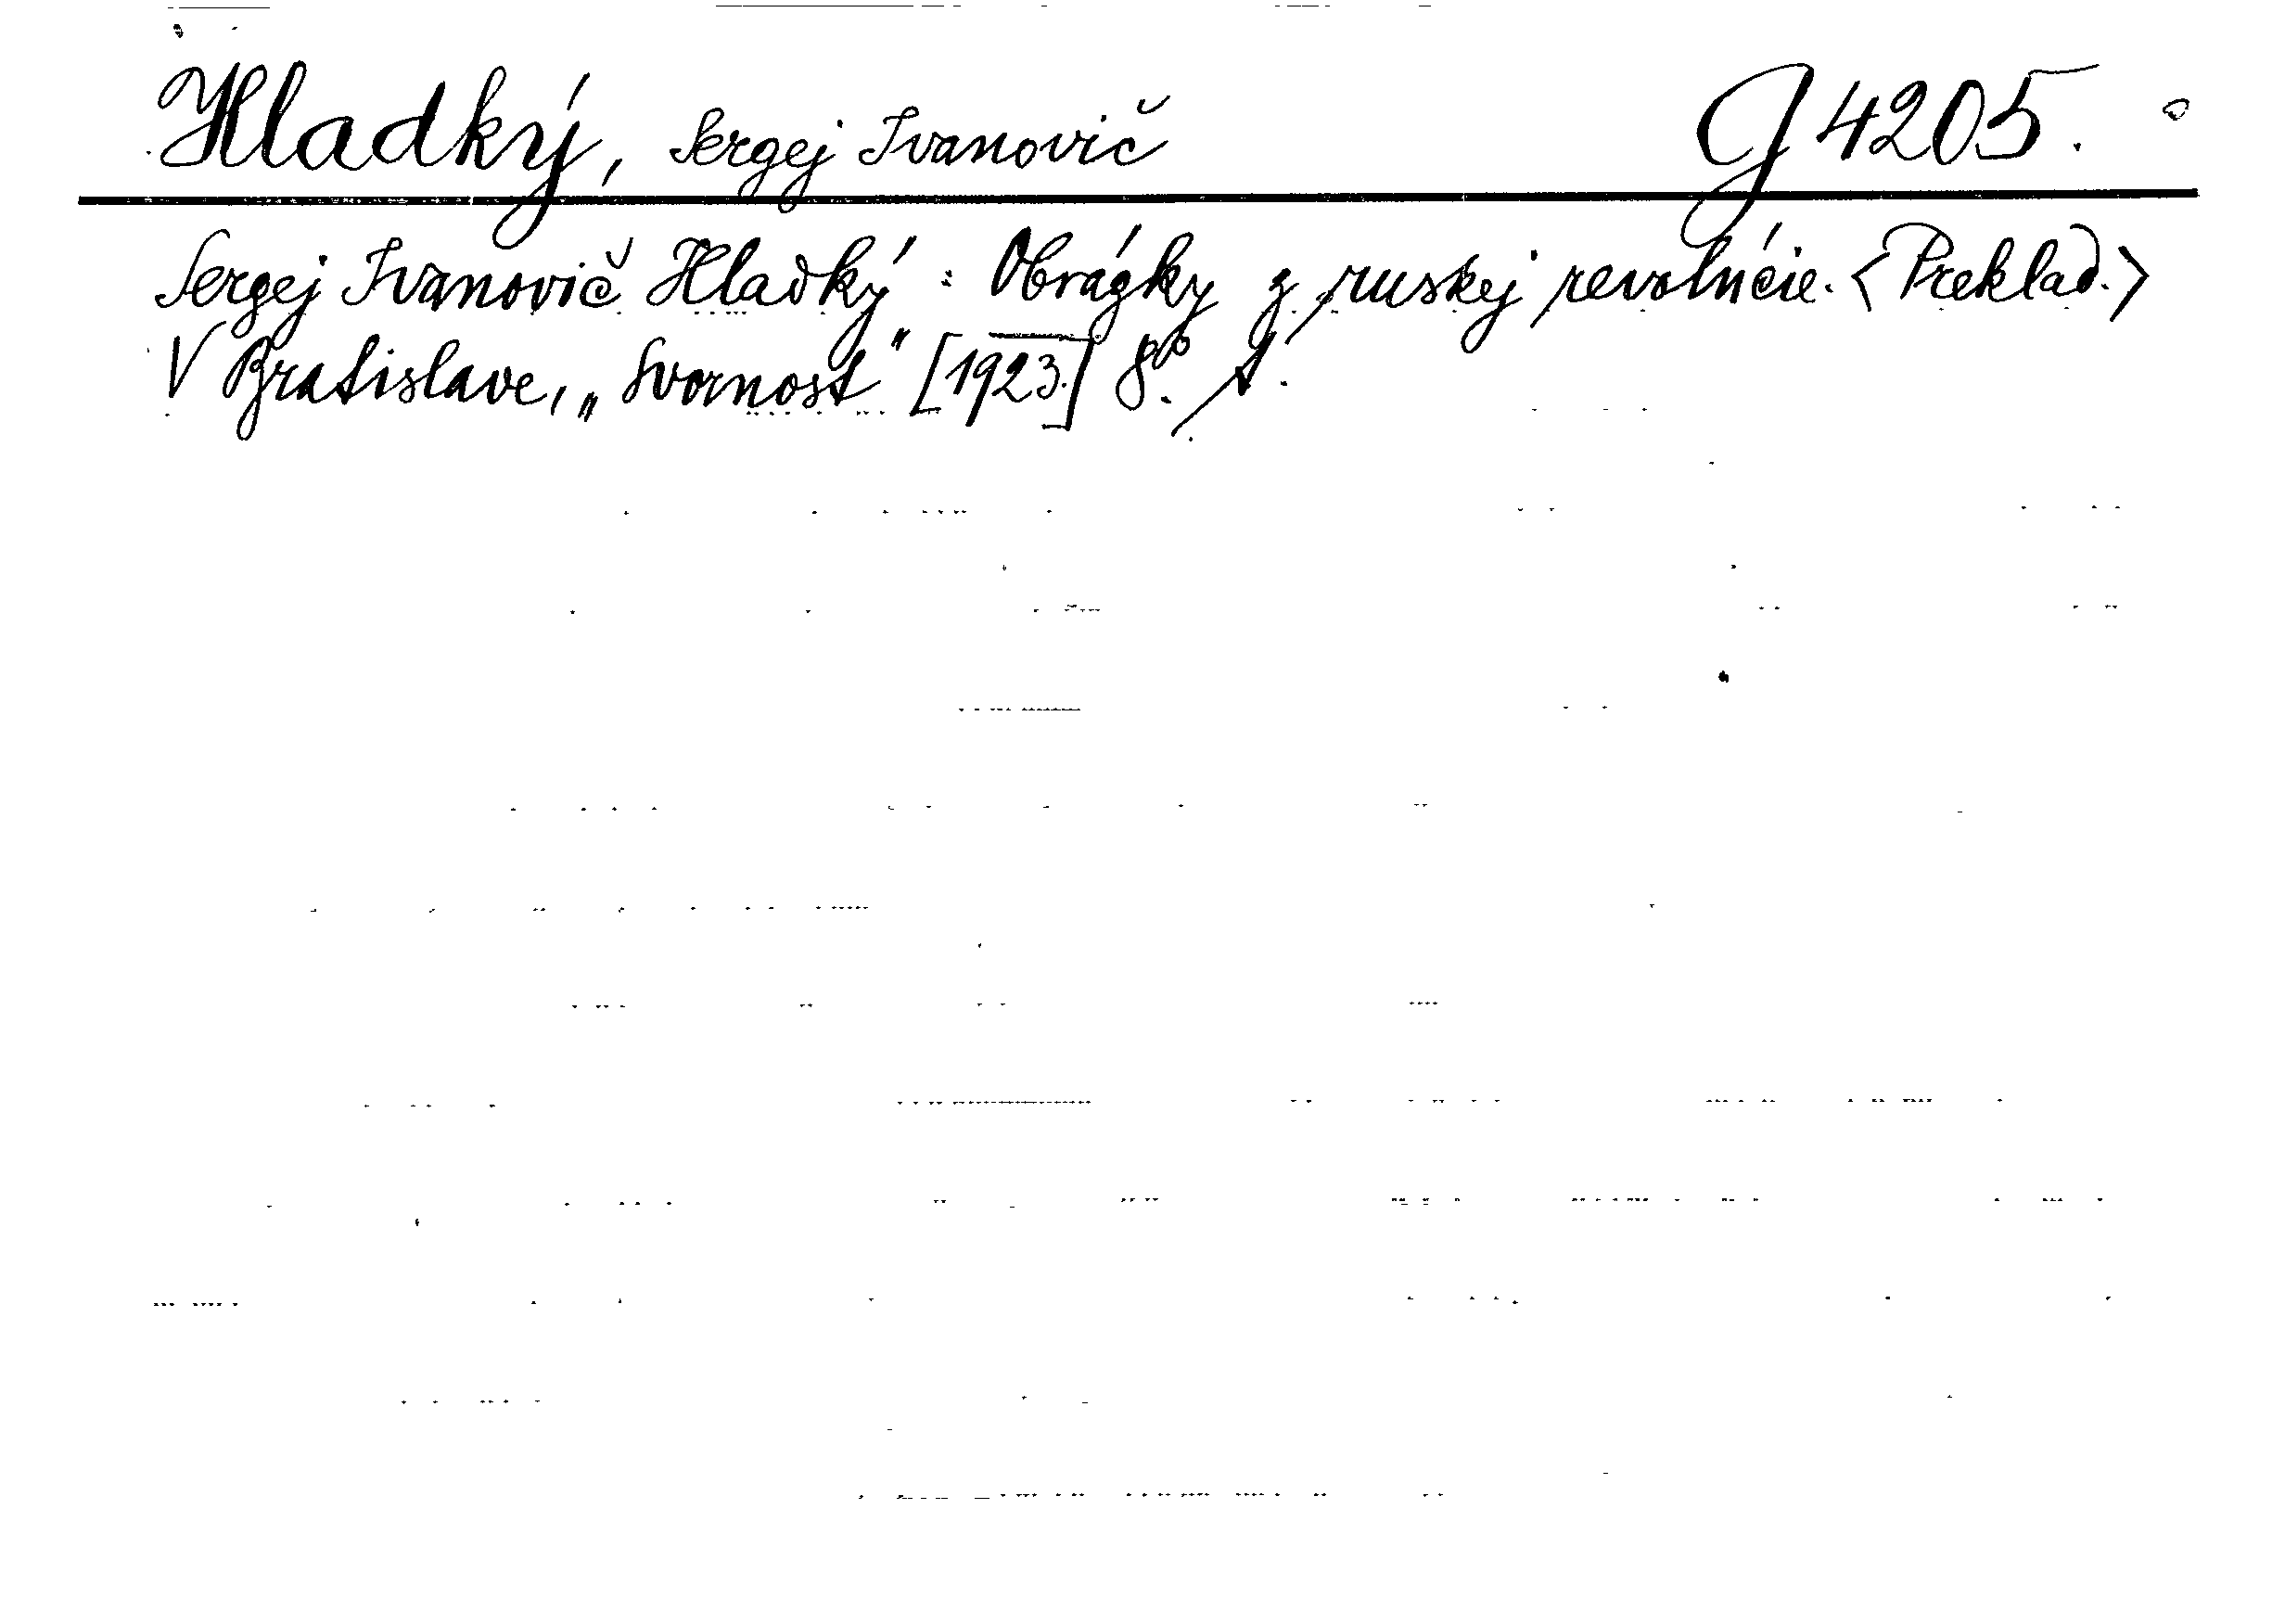 Hladký, Sergej Ivanovič G 4205.
Sergej Ivanovič Hladký: Obrázky z ruskej revolúcie. <Preklad.>
V Bratislave, „Svornosť" [1923.] 8°.